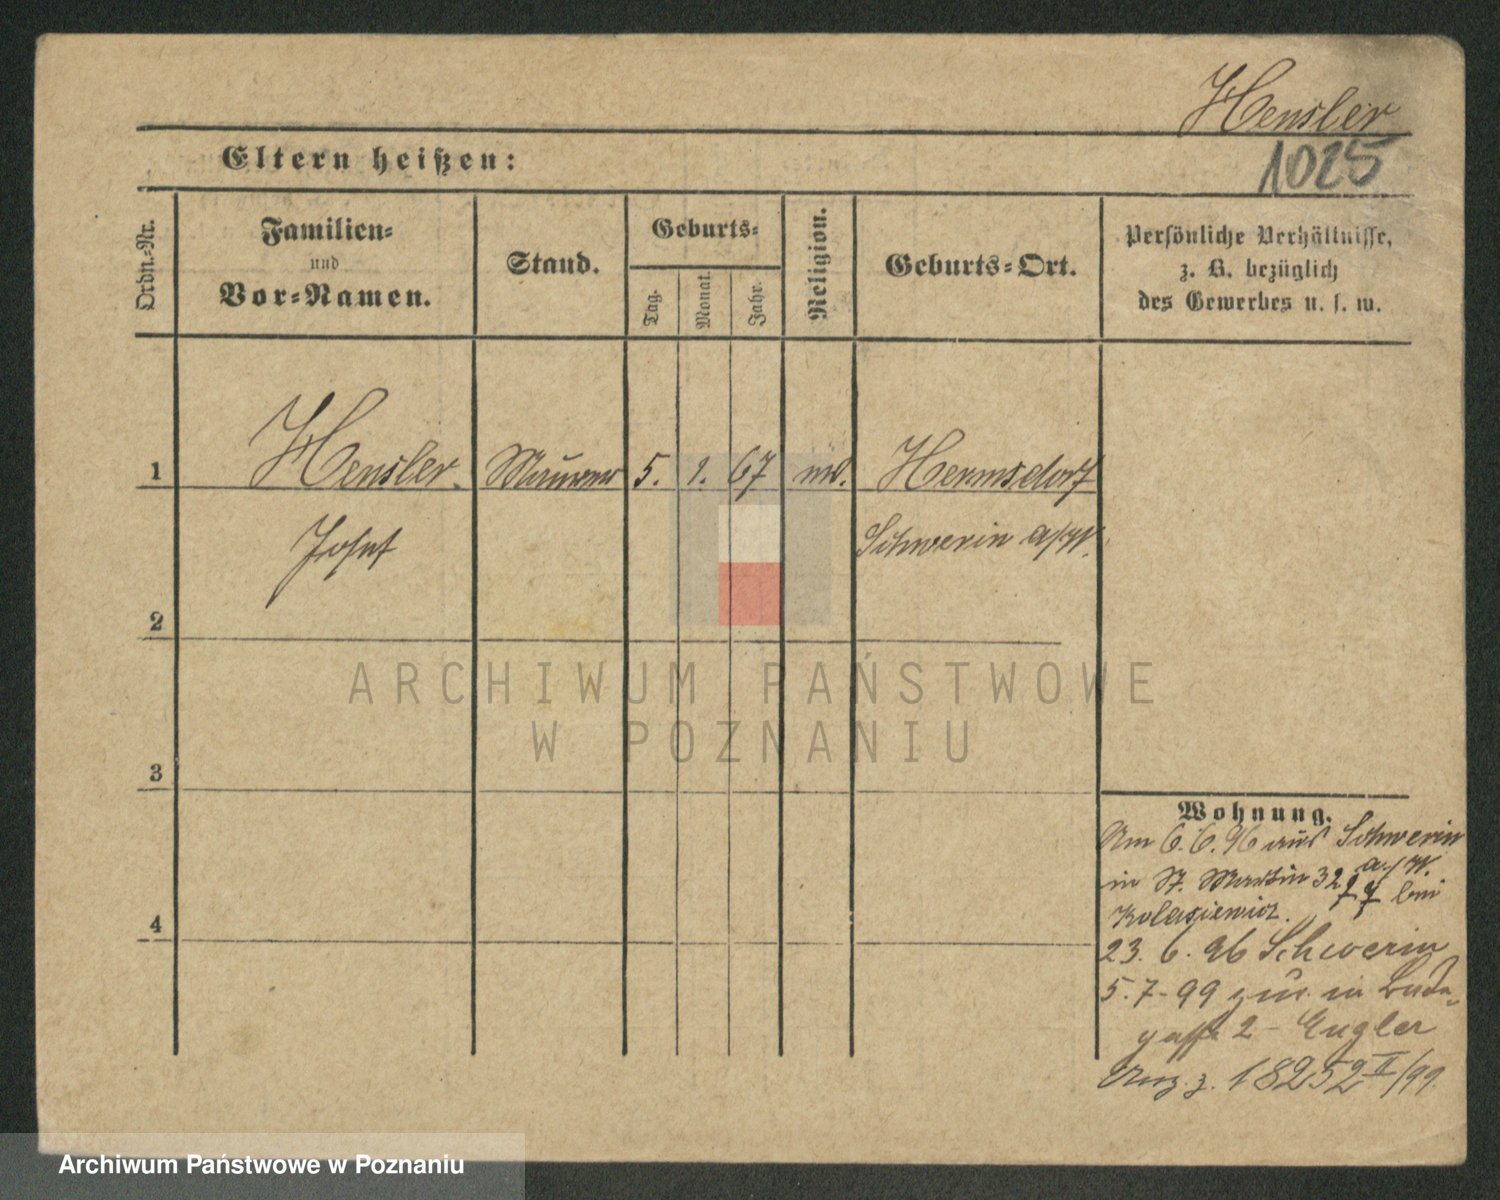 Hensler
1025
Eltern heißen:
Ordn.-Nr.
Familien-
und
Vor-Namen.
Stand.
Geburts-
Tag.
Monat.
Jahr.
Religion.
Geburts-Ort.
Persönliche Verhältnisse,
z. B. bezüglich
des Gewerbes u. s. w.
1
Hensler
Maurer
5. 1. 67
Hermsdorf
Josef
Schwerin a/W.
2
ARCHIWUM PAŃSTWOWE
W POZNANIU
3
Wohnung.
Am 6.6.96 aus Schwerin
a./W.
in St. Martin bei
Kolasiewicz.
4
23. 6. 96 Schwerin
5.7-99 in
gasse 2 - Engler
18252 II/99
Archiwum Państwowe w Poznaniu